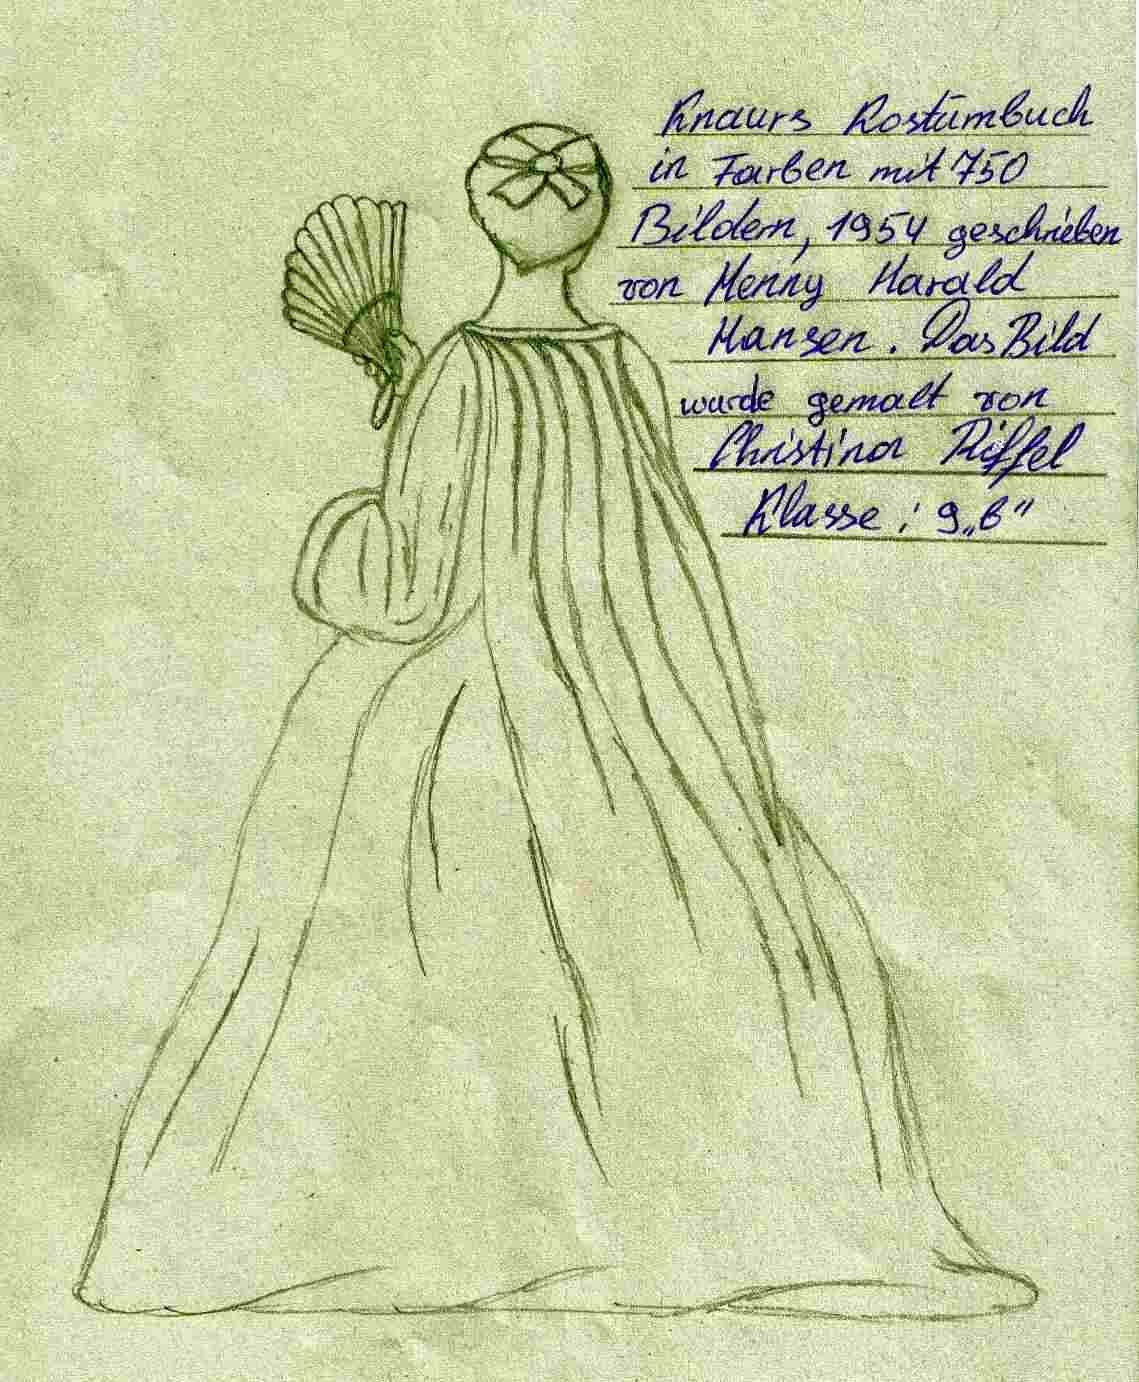 Knaurs Kostümbuch
in Farben mit 750
Bildern, 1954 geschrieben
von Henny Harald
Hansen. Das Bild
wurde gemalt von
Christina Riffel
Klasse: 9„b“